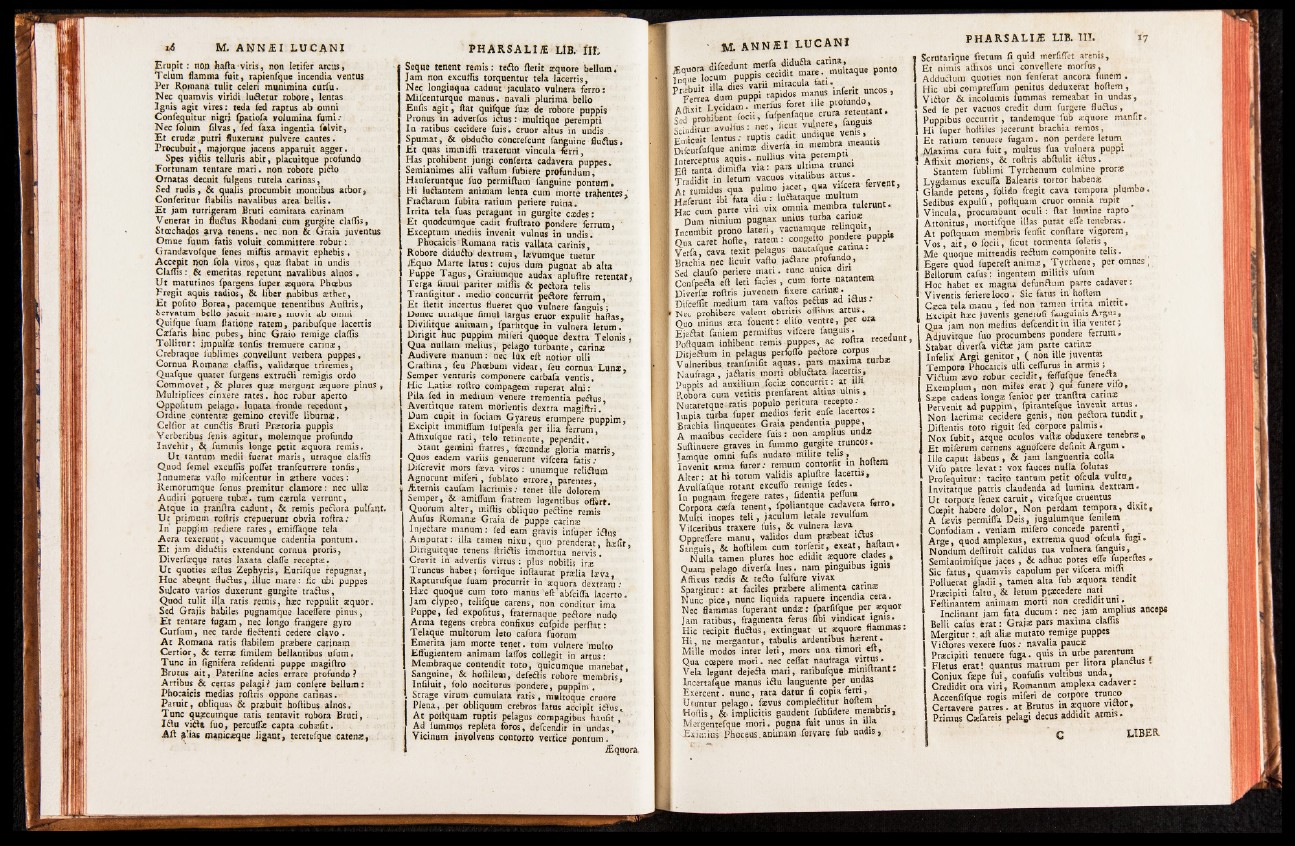 16 M. ANNÆI LUCANI
Erupit: non haſta viris, non letifer arcus,
Telum flamma fuit, rapienſque incendia ventus
Per Romana tulit celeri munimina curſu.
Nec quamvis viridi luctetur robore, lentas
Ignis agit vires: teda ſed raptus ab omni
Conſequitur nigri ſpatioſa volumina fumi:
Nec ſolum ſilvas, ſed ſaxa ingentia ſolvit,
Et crudæ putri fluxerunt pulvere cautes.
Procubuit, majorque jacens apparuit agger.
Spes victis telluris abit, placuitque profundo
Fortunam tentare mari. non robore picto
Ornatas decuit fulgens tutela carinas,
Sed rudis, & qualis procumbit montibus arbor,
Conſeritur ſtabilis navalibus area bellis.
Et jam turrigeram Bruti comitata carinam
Venerat in fluctus Rhodani cum gurgite claſſis,
Stœchados arva tenens. nec non & Graia juventus
Omne ſuum fatis voluit committere robur:
Grandævoſque ſenes miſtis armavit ephebis,
Accepit non ſola viros, quæ ſtabat in undis
Claſſis: & emeritas repetunt navalibus alnos.
Ut maturinos ſpargens ſuper æquora Phœbus
Fregit aquis radios, & liber nubibus æther,
Et poſito Borea, pacemque tenentibus Auſtris,
Servatum bello jacuit mare, movit ab omni
Quiſque ſuam ſtatione ratem, paribuſque lacertis
Cæſaris hinc pubes, hinc Graio remige claſſis
Tollitur: impulſæ tonſis tremuere carinæ,
Crebraque ſublimes convellunt verbera puppes.
Cornua Romanæ claſſis, validæque triremes,
Quaſque quater ſurgens extructi remigis ordo
Commovet, & plures quæ mergunt æquore pinus,
Multiplices cinxere rates. hoc robur aperto
Oppoſitum pelago. lunata fronde recedunt,
Ordine contentæ gemino creviſſe liburnæ.
Celſior at cunctis Bruti Prætoria puppis
Verberibus ſenis agitur, molemque profundo
Invehit, & ſummis longe petit æquora remis.
Ut tantum medii fuerat maris, utraque claſſis
Quod ſemel excuſſis poſſet tranſcurrere tonſis,
Innumeræ vaſto miſcentur in æthere voces:
Remorumque ſonus premitur clamore: nec ullæ
Audiri potuere tubæ. tum cærula verrunt,
Atque in tranſtra cadunt, & remis pectora pulſant.
Ut primum roſtris crepuerunt obvia roſtra:
In puppim rediere rates, emiſſaque tela
Aera texerunt, vacuumque cadentia pontum.
Et jam diductis extendunt cornua proris,
Diverſæque rates laxata claſſe receptæ.
Ut quoties æſtus Zephyris, Euriſque repugnat,
Huc abeunt fluctus, illuc mare: ſic ubi puppes
Sulcato varios duxerunt gurgite tractus,
Quod tulit illa ratis remis, hæc reppulit æquor.
Sed Grajis habiles pugnamque laceſſere pinus,
Et tentare fugam, nec longo frangere gyro
Curſum, nec tarde flectenti cedere clavo.
At Romana ratis ſtabilem præbere carinam
Certior, & terræ ſimilem bellantibus uſum.
Tunc in ſignifera reſidenti puppe magiſtro
Brutus ait, Paterisne acies errare profundo?
Artibus & certas pelagi? jam conſere bellum:
Phocaicis medias roſtris oppone carinas.
Paruit, obliquas & præbuit hoſtibus alnos.
Tunc quæcumque ratis tentavit robora Bruti,
Ictu victa ſuo, percuſſæ capta cohæſit.
Aſt alias manicæque ligant, tereteſque catenæ,
PHARSALIÆ LIB. III.
Seque tenent remis: tecto ſtetit æquore bellum.
Jam non excuſſis torquentur tela lacertis,
Nec longinqua cadunt jaculato vulnera ferro:
Miſcenturque manus. navali plurima bello
Enſis agit, ſtat quiſque ſuæ de robore puppis
Pronus in adverſos ictus: multique perempti
In ratibus cecidere ſuis. cruor altus in undis
Spumat, & obducto concreſcunt ſanguine fluctus.
Et quas immiſſi traxerunt vincula ferri,
Has prohibent jungi conſerta cadavera puppes.
Semianimes alii vaſtum ſubiere profundum,
Hauſeruntque ſuo permiſtum ſanguine pontum.
Hi luctantem animam lenta cum morte trahentes,
Fractarum ſubita ratium periere ruina.
Irrita tela ſuas peragunt in gurgite cædes:
Et quodcumque cadit fruſtrato pondere ferrum,
Exceptum mediis invenit vulnus in undis.
Phocaicis Romana ratis vallata carinis,
Robore diducto dextrum, lævumque tuetur
Æquo Marte latus: cujus dum pugnat ab alta
Puppe Tagus, Graiumque audax apluſtre retentat,
Terga ſimul pariter miſſis & pectora telis
Tranſigitur. medio concurrit pectore ferrum,
Et ſtetit incertus flueret quo vulnere ſanguis:
Donec utraſque ſimul largus cruor expulit haſtas,
Diviſitque animam, ſparſitque in vulnera letum.
Dirigit huc puppim miſeri quoque dextra Telonis,
Qua nullam melius, pelago turbante, carinæ
Audivere manum: nec lux eſt notior ulli
Craſtina, ſeu Phœbum videat, ſeu cornua Lunæ,
Semper venturis componere carbaſa ventis.
Hic Latiæ roſtro compagem ruperat alni:
Pila ſed in medium venere trementia pectus,
Avertitque ratem morientis dextra magiſtri.
Dum cupit in ſociam Gyareus erumpere puppim,
Excipit immiſſum ſuſpenſa per ilia ferrum,
Affixuſque rati, telo retinente, pependit.
Stant gemini fratres, fœcundæ gloria matris,
Quos eadem variis genuerunt viſcera fatis:
Diſcrevit mors ſæva viros: unumque relictum
Agnorunt miſeri, ſublato errore, parentes,
Æternis cauſam lacrimis: tenet ille dolorem
Semper, & amiſſum fratrem lugentibus offert.
Quorum alter, miſtis obliquo pectine remis
Auſus Romanæ Graia de puppe carinæ
Injectare manum: ſed eam gravis inſuper ictus
Amputat: illa tamen nixu, quo prenderat, hæſit,
Diriguitque tenens ſtrictis immortua nervis.
Crevit in adverſis virtus: plus nobilis iræ
Truncus habet: fortique inſtaurat prælia læva,
Rapturuſque ſuam procurrit in æquora dextram:
Hæc quoque cum toto manus eſt abſciſſa lacerto.
Jam clypeo, teliſque carens, non conditur ima
Puppe, ſed expoſitus, fraternaque pectore nudo
Arma tegens crebra confixus cuſpide perſtat:
Telaque multorum leto caſura ſuorum
Emerita jam morte tenet. tum vulnere multo
Effugientem animam laſſos collegit in artus:
Membraque contendit toto, quicumque manebat,
Sanguine, & hoſtilem, defectis robore membris,
Inſiluit, ſolo nociturus pondere, puppim.
Strage virum cumulata ratis, multoque cruore
Plena, per obliquum crebros latus accipit ictus.
At poſtquam ruptis pelagus compagibus hauſit,
Ad ſummos repleta foros, deſcendit in undas,
Vicinum involvens contorto vertice pontum.
Æquora
M. ANNÆI LUCANI
Æquora diſcedunt merſa diducta carina,
Inque locum puppis cecidit mare. multaque ponto
Præbuit illa dies varii miracula fati.
Ferrea dum puppi rapidos manus inſerit uncos,
Affixit Lycidam. merſus foret ille profundo,
Sed prohibent ſocii, ſuſpenſaque crura retentant.
Scinditur avulſus: nec, ſicut vulnere, ſanguis
Emicuit lentus: ruptis cadit undique venis,
Diſcurſuſque animæ diverſa in membra meantis
Interceptus aquis. nullius vita perempti
Eſt tanta dimiſſa via: pars ultima trunci
Tradidit in letum vacuos vitalibus artus.
At tumidus qua pulmo jacet, qua viſcera fervent,
Hæſerunt ibi fata diu: luctataque multum
Hæc cum parte viri vix omnia membra tulerunt.
Dum nimium pugnax unius turba carinæ
Incumbit prono lateri, vacuamque relinquit,
Qua caret hoſte, ratem: congeſto pondere puppis
Verſa, cava texit pelagus nautaſque carina:
Brachia nec licuit vaſto jactare profundo,
Sed clauſo periere mari. tunc unica diri
Conſpecta eſt leti facies, cum forte natantem
Diverſæ roſtris juvenem fixere carinæ.
Diſceſſit medium tam vaſtos pectus ad ictus:
Nec prohibere valent obtritis oſſibus artus,
Quo minus æra ſonent: eliſo ventre, per ora
Ejectat ſaniem permiſtus viſcere ſanguis.
Poſtquam inhibent remis puppes, ac roſtra recedunt,
Disjectum in pelagus perfoſſo pectore corpus
Vulneribus tranſmiſit aquas. pars maxima turbæ
Naufraga, jactatis morti obluctata lacertis,
Puppis ad auxilium ſociæ concurrit: at illi
Robora cum vetitis prenſarent altius ulnis,
Nutaretque ratis populo peritura recepto:
Impia turba ſuper medios ferit enſe lacertos:
Brachia linquentes Graia pendentia puppe,
A manibus cecidere ſuis: non amplius undæ
Suſtinuere graves in ſummo gurgite truncos.
Jamque omni fuſis nudato milite telis,
Invenit arma furor: remum contorſit in hoſtem
Alter: at hi totum validis apluſtre lacertis,
Avulſaſque rotant excuſſo remige ſedes.
In pugnam fregere rates, ſidentia peſſum
Corpora cæſa tenent, ſpoliantque cadavera ferro,
Multi inopes teli, jaculum letale revulſum
Viſceribus traxere ſuis, & vulnera læva
Oppreſſere manu, validos dum præbeat ictus
Sanguis, & hoſtilem cum torſerit, exeat, haſtam.
Nulla tamen plures hoc edidit æquore clades,
Quam pelago diverſa lues. nam pinguibus ignis
Affixus tædis & tecto ſulfure vivax
Spargitur: at faciles præbere alimenta carinæ
Nunc pice, nunc liquida rapuere incendia cera.
Nec flammas ſuperant undæ: ſparſiſque per æquor
Jam ratibus, fragmenta ferus ſibi vindicat ignis.
Hic recipit fluctus, extinguat ut æquore flammas:
Hi, ne mergantur, tabulis ardentibus hærent.
Mille modos inter leti, mors una timori eſt,
Qua cœpere mori. nec ceſſat naufraga virtus.
Vela legunt dejecta mari, ratibuſque miniſtrant:
Incertaſque manus ictu languente per undas
Exercent. nunc, rara datur ſi copia ferri,
Utuntur pelago. ſævus complectitur hoſtem
Hoſtis, & implicitis gaudent ſubſidere membris,
Mergenteſque mori. pugna fuit unus in illa
Eximius Phoceus, animam ſervare ſub undis,
PHARSALIÆ LIB. III. 17
Scrutarique fretum ſi quid merſiſſet arenis,
Et nimis affixos unci convellere morſus,
Adductum quoties non ſenſerat ancora funem.
Hic ubi compreſſum penitus deduxerat hoſtem,
Victor & incolumis ſummas remeabat in undas,
Sed ſe per vacuos credit dum ſurgere fluctus,
Puppibus occurrit, tandemque ſub æquore manſit.
Hi ſuper hoſtiles jecerunt brachia remos,
Et ratium tenuere fugam. non perdere letum
Maxima cura fuit, multus ſua vulnera puppi
Affixit moriens, & roſtris abſtulit ictus.
Stantem ſublimi Tyrrhenum culmine proræ
Lygdamus excuſſa Balearis tortor habenæ
Glande petens, ſolido fregit cava tempora plumbo.
Sedibus expulſi, poſtquam cruor omnia rupit
Vincula, procumbunt oculi: ſtat lumine rapto
Attonitus, mortiſque illas putat eſſe tenebras.
At poſtquam membris ſenſit conſtare vigorem,
Vos, ait, o ſocii, ſicut tormenta ſoletis,
Me quoque mittendis rectum componite telis.
Egere quod ſupereſt animæ, Tyrrhene, per omnes
Bellorum caſus: ingentem militis uſum
Hoc habet ex magna defunctum parte cadaver:
Viventis feriere loco. Sic fatus in hoſtem
Cæca tela manu, ſed non tamen irrita mittit.
Excipit hæc juvenis generoſi ſanguinis Argus,
Qua jam non medius deſcendit in ilia venter;
Adjuvitque ſuo procumbens pondere ferrum.
Stabat diverſa victæ jam parte carinæ
Infelix Argi genitor, (non ille juventæ
Tempore Phocaicis ulli ceſſurus in armis;
Victum ævo robur cecidit, feſſuſque ſenecta
Exemplum, non miles erat) qui funere viſo,
Sæpe cadens longæ ſenior per tranſtra carinæ
Pervenit ad puppim, ſpiranteſque invenit artus.
Non lacrimæ cecidere genis, non pectora tundit,
Diſtentis toto riguit ſed corpore palmis.
Nox ſubit, atque oculos vaſtæ obduxere tenebræ,
Et miſerum cernens agnoſcere deſinit Argum.
Ille caput labens, & jam languentia colla
Viſo patre levat: vox fauces nulla ſolutas
Proſequitur: tacito tantum petit oſcula vultu,
Invitatque patris claudenda ad lumina dextram.
Ut torpore ſenex caruit, vireſque cruentus
Cœpit habere dolor, Non perdam tempora, dixit,
A ſævis permiſſa Deis, jugulumque ſenilem
Confodiam. veniam miſero concede parenti,
Arge, quod amplexus, extrema quod oſcula fugi.
Nondum deſtituit calidus tua vulnera ſanguis,
Semianimiſque jaces, & adhuc potes eſſe ſuperſtes.
Sic fatus, quamvis capulum per viſcera miſſi
Polluerat gladii, tamen alta ſub æquora tendit
Præcipiti ſaltu, & letum præcedere nati
Feſtinantem animam morti non credidit uni.
Inclinant jam fata ducum: nec jam amplius anceps
Belli caſus erat: Grajæ pars maxima claſſis
Mergitur: aſt aliæ mutato remige puppes
Victores vexere ſuos: navalia paucæ
Præcipiti tenuere fuga. quis in urbe parentum
Fletus erat! quantus matrum per litora planctus!
Conjux ſæpe ſui, confuſis vultibus unda,
Credidit ora viri, Romanum amplexa cadaver:
Accenſiſque rogis miſeri de corpore trunco
Certavere patres. at Brutus in æquore victor,
Primus Cæſareis pelagi decus addidit armis.
C LIBER